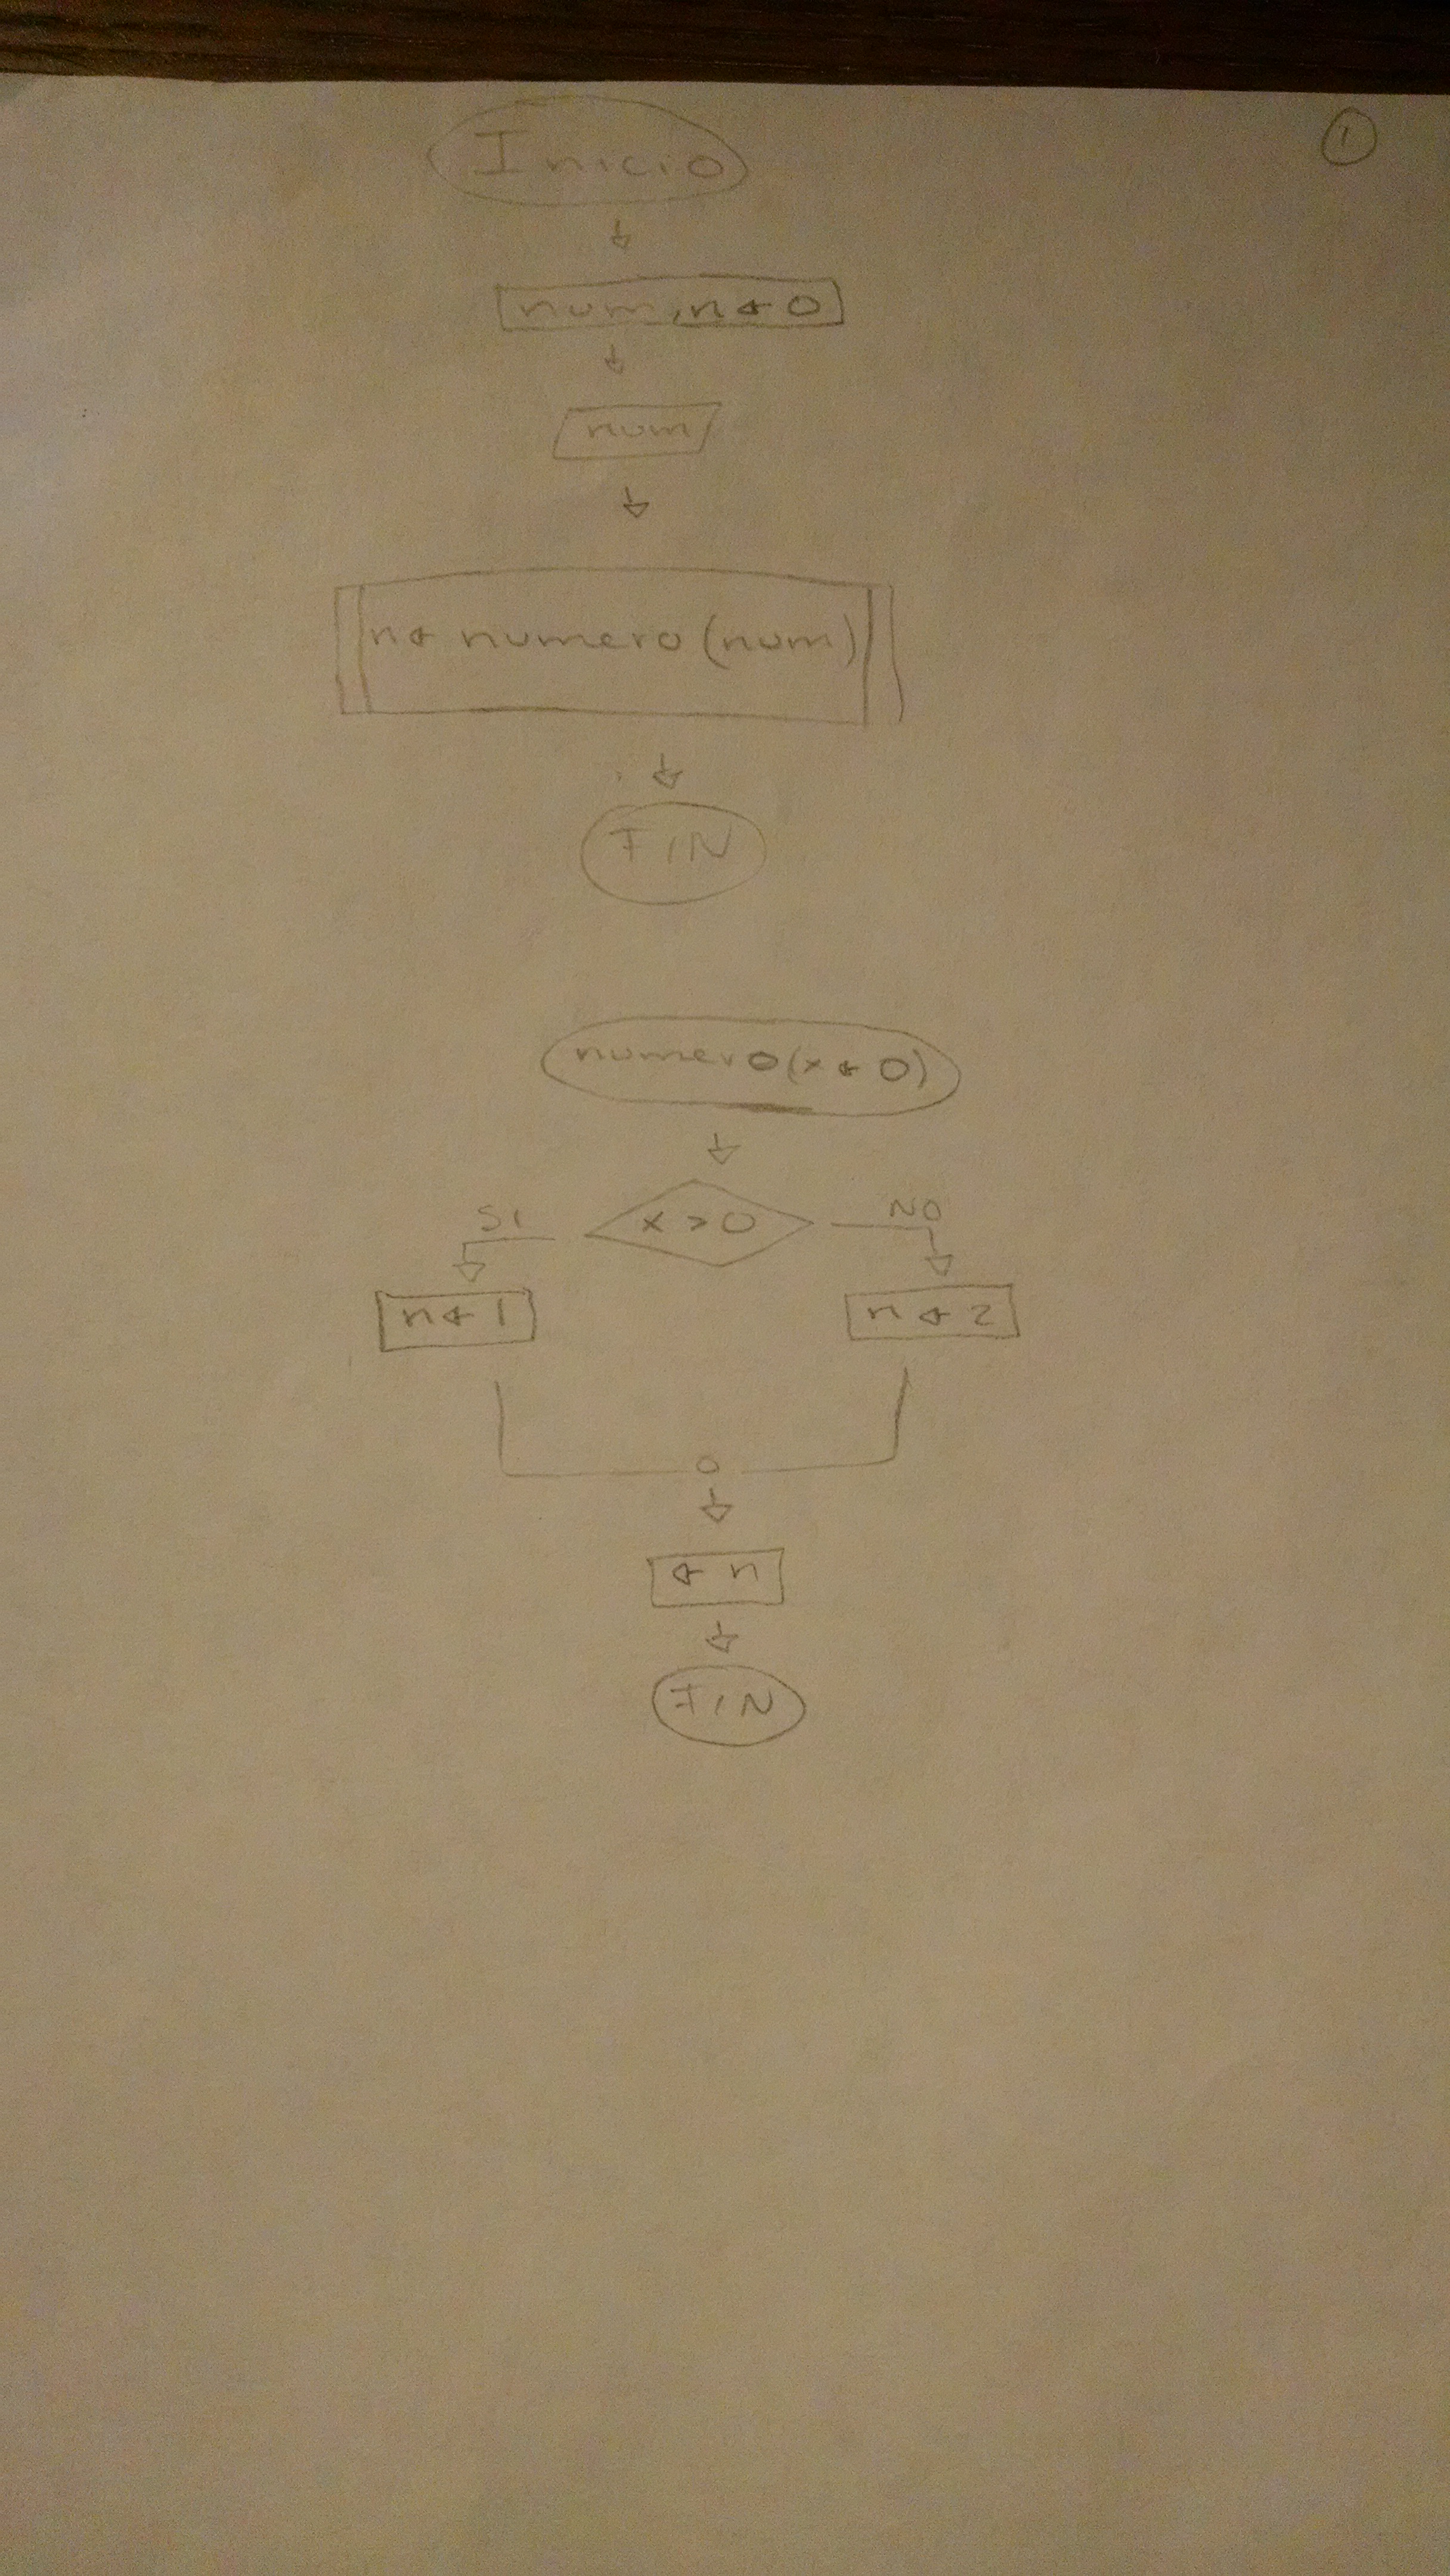 1
Inicio
num, n ← 0
num
n ← numero (num)
FIN
numero (x ← 0)
x > 0
SI
NO
n ← 1
n ← 2
← n
FIN